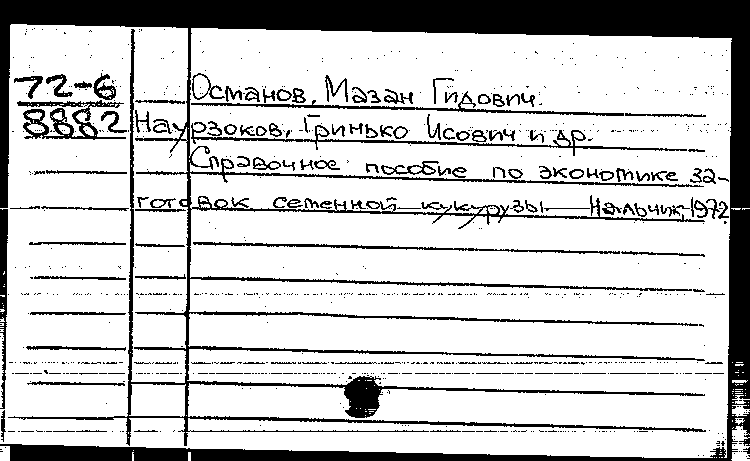 72-6
8882
Останов, Мазан Гидович.
Наурзоков, Гринько Исович и др.
Справочное пособие по экономике за-
готовок семенной кукурузы. Нальчик, 1972